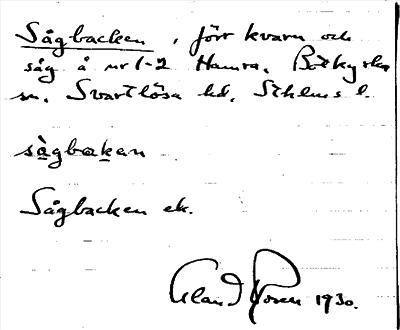 Sågbacken, förr kvarn och
såg å nr 1-2 Hamra, Botkyrka
sn. Svartlösa hd, Sthlms l.
sàgbakan
Sågbacken ek.
1930.